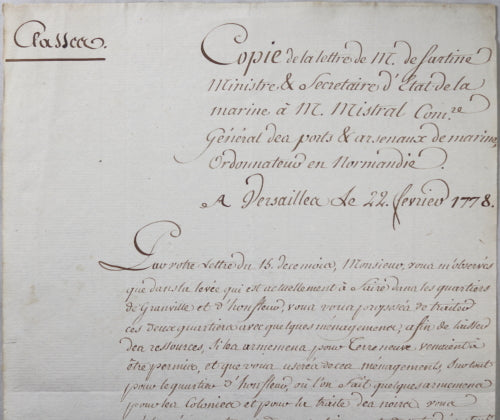 Classes.
Copie de la lettre de M. de Sartine
Ministre & Secretaire d'Etat de la
marine à M. Mistral Com.re
Général des ports & arsenaux de marine,
Ordonnateur en Normandie.
A Versailles Le 22. fevrier 1778.
Par votre Lettre du 15. de ce mois, Monsieur, vous m'observés
que dans la levée qui est actuellement à faire dans les quartiers
de Granville et d'honfleur, vous vous proposés de traiter
ces deux quartiers avec quelques menagemens, afin de laisser
des ressources, Si les armemens pour Terre neuve venoient à
être permis, et que vous userés de ces ménagemens, Surtout
pour le quartier d'honfleur, où l'on fait quelques armemens
pour les Colonies et pour la traite des noirs. vous